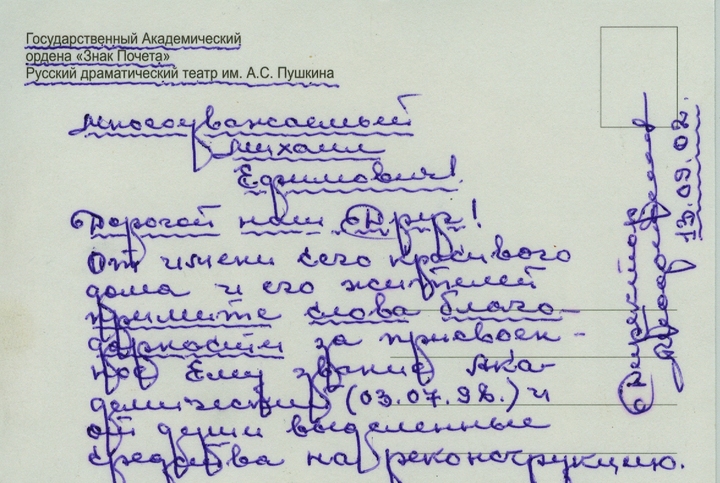 Государственный Академический
ордена «Знак Почета»
Русский драматический театр им. А.С. Пушкина
Многоуважаемый
Михаил
Ефимович!
Дорогой наш Друг!
От имени сего красивого
дома и его жителей
примите слова благо-
дарности за присвоен-
ное Ему звание Ака-
демический (03.07.98.) и
от души выделенные
средства на реконструкцию.
Директор
13.09.02.